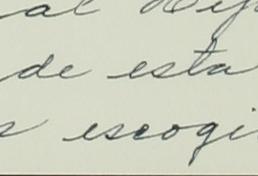 al
de esta
s escogi